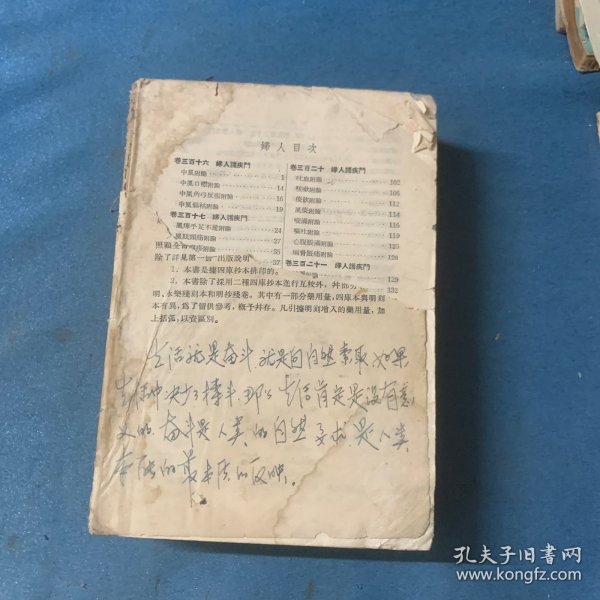 婦人目次
卷三百十六 婦人諸疾門
中風附論 1
中風口噤附論 14
中風角弓反張附論 16
中風偏枯附論 19
卷三百十七 婦人諸疾門
風痺手足不隨附論 24
風眩頭痛附論 27
35
37
卷三百二十 婦人諸疾門
吐血附論 102
咳嗽附論 106
痰飲附論 112
風痰附論 114
喉痛附論 115
嘔吐附論 118
心腹脹滿附論 122
兩脅脹痛附論 126
卷三百二十一 婦人諸疾門
129
132
除了詳見第一冊“出版說明
1．本書是據四庫抄本排印的。
2．本書除了採用二種四庫抄本進行互校外，幷部
明、永樂殘刻本和明抄殘卷。其中有一部分藥用量，四庫本與明刻
本有異，爲了留供參考，概予幷存。凡引據明刻增入的藥用量，加
上括弧，以資區別。
生活就是奋斗 就是向自然索取 如果
生活中决乏搏斗，那么生活肯定是没有意
义的. 奋斗是人类的自然要求 是人类
本能的最本质的反映。
孔夫子旧书网
www.kongfz.com